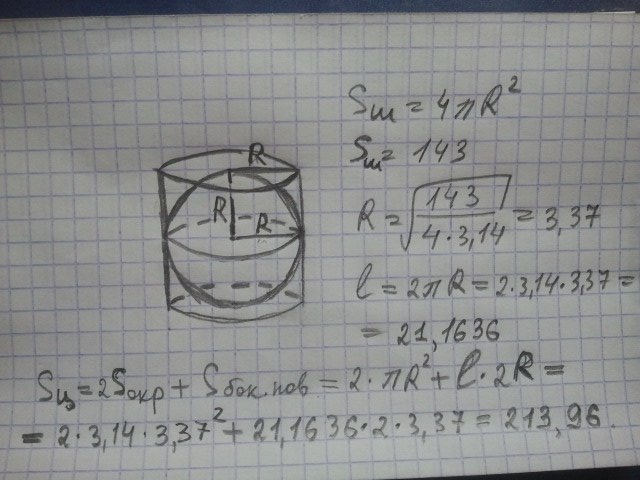 R
R
R
Sш = 4πR²
Sш = 143
R = √(143 / 4·3,14) = 3,37
l = 2πR = 2·3,14·3,37 =
= 21,1636
Sц = 2Sокр + Sбок.пов = 2·πR² + l·2R =
= 2·3,14·3,37² + 21,1636·2·3,37 = 213,96.